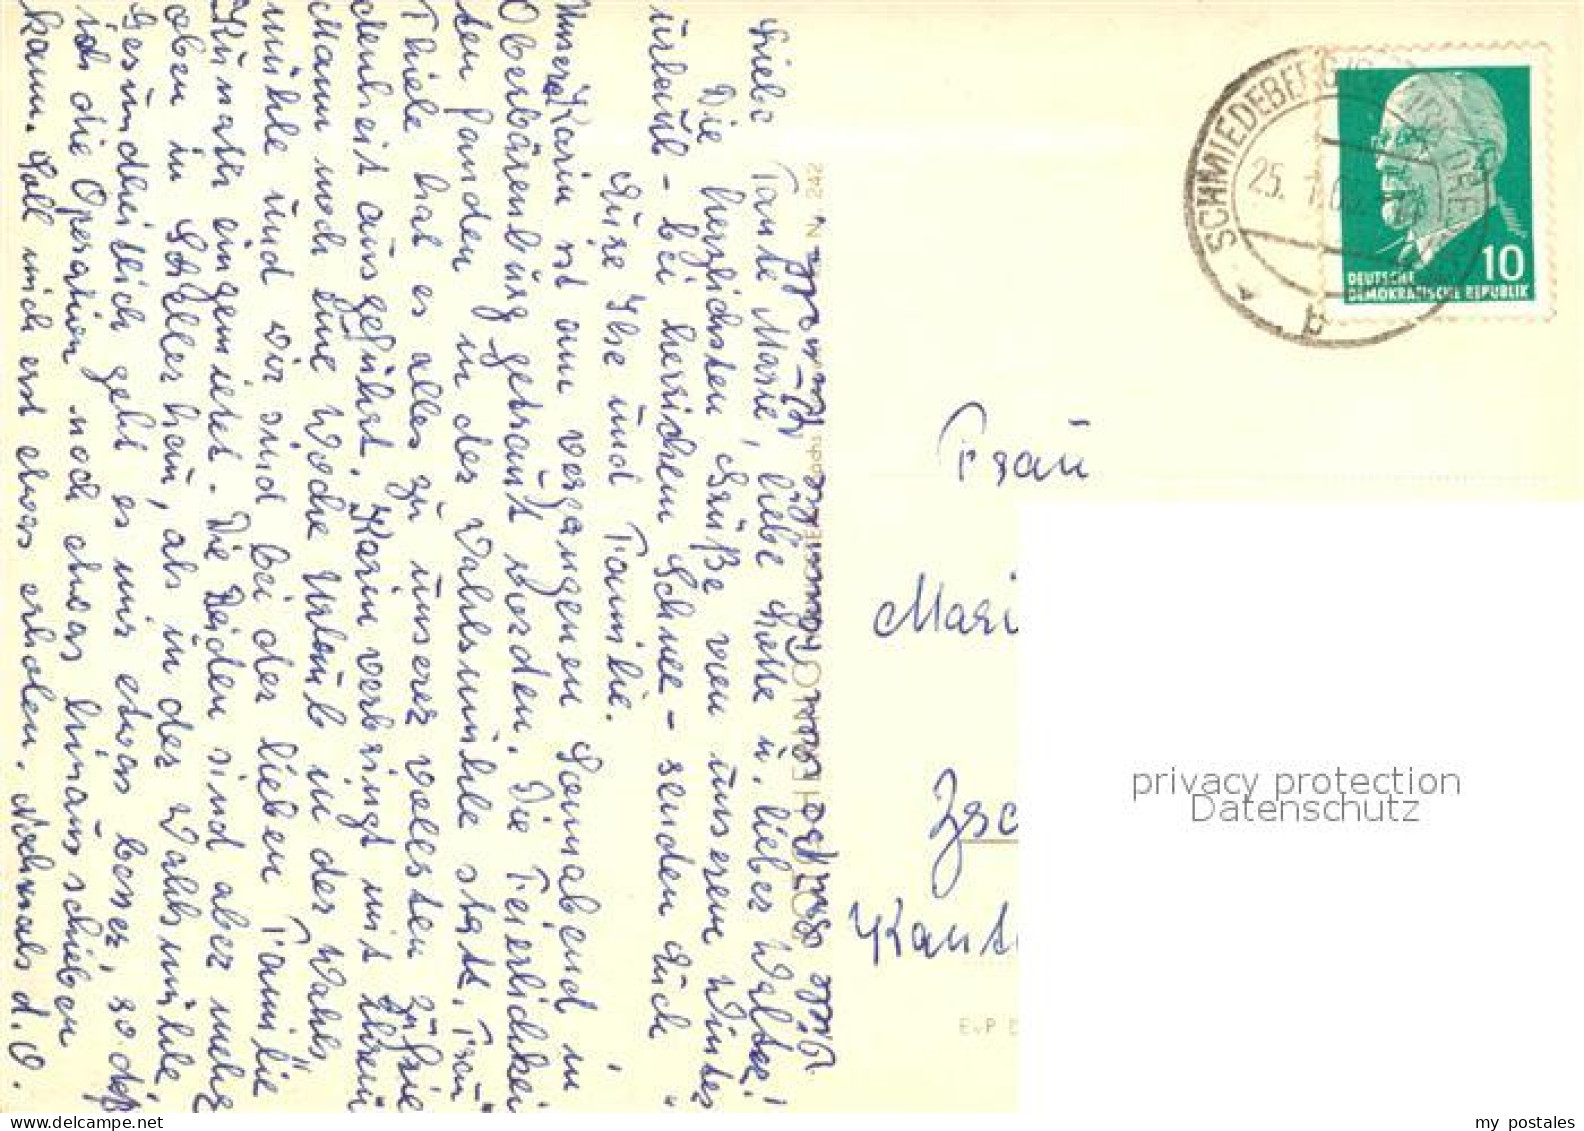 Liebe Tante Marie, liebe Käthe u. lieber Walter!
Die herzlichsten Grüße von unserem Winter
urlaub - bei herrlichem Schnee - senden Euch
Eure Ilse und Familie.
Unsere Karin ist am vergangenen Sonnabend in
Oberbärenburg getraut worden. Die Feierlichkei
ten fanden in der Wahlsmühle statt. Frau
Thiele hat es alles zu unserer vollsten Zufrie
denheit ausgeführt. Karin verbringt mit ihrem
Mann noch eine Woche Urlaub in der Wahls
mühle und wir sind bei der lieben Familie
Kunath eingemietet. Die Beiden sind aber mehr
oben in Schellerhau, als in der Wahlsmühle.
Gesundheitlich geht es mir etwas besser, so daß
ich die Operation noch etwas hinausschieben
kann. Soll mich erst etwas erholen. Nochmals d. O.
Viele Grüße von Familie
N. 242
SCHMIEDEBERG
25. 1. 6
b
10
DEUTSCHE
DEMOKRATISCHE REPUBLIK
Frau
Mari
Zsc
Kant
EvP D
privacy protection
Datenschutz
my postales